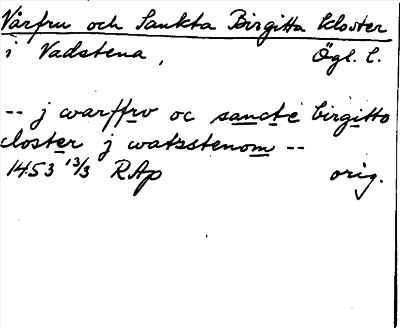 Vårfru och Sankta Birgitta kloster
i Vadstena, Ögl. l.
-- j warffrv oc sancte birgitto
closter j watzstenom --
1453 13/3 RAp orig.